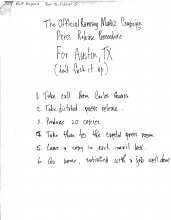 The Official Ramsey Muñiz Campaign
Press Release Procedure
For Austin, TX
(don't fuck it up)
1. Take call from Carlos Guerra
2. Take dictated press release.
3. Produce 20 copies
4. Take them to the capitol press room
5. Leave a copy in each mail box.
6. Go home, satisfied with a job well done